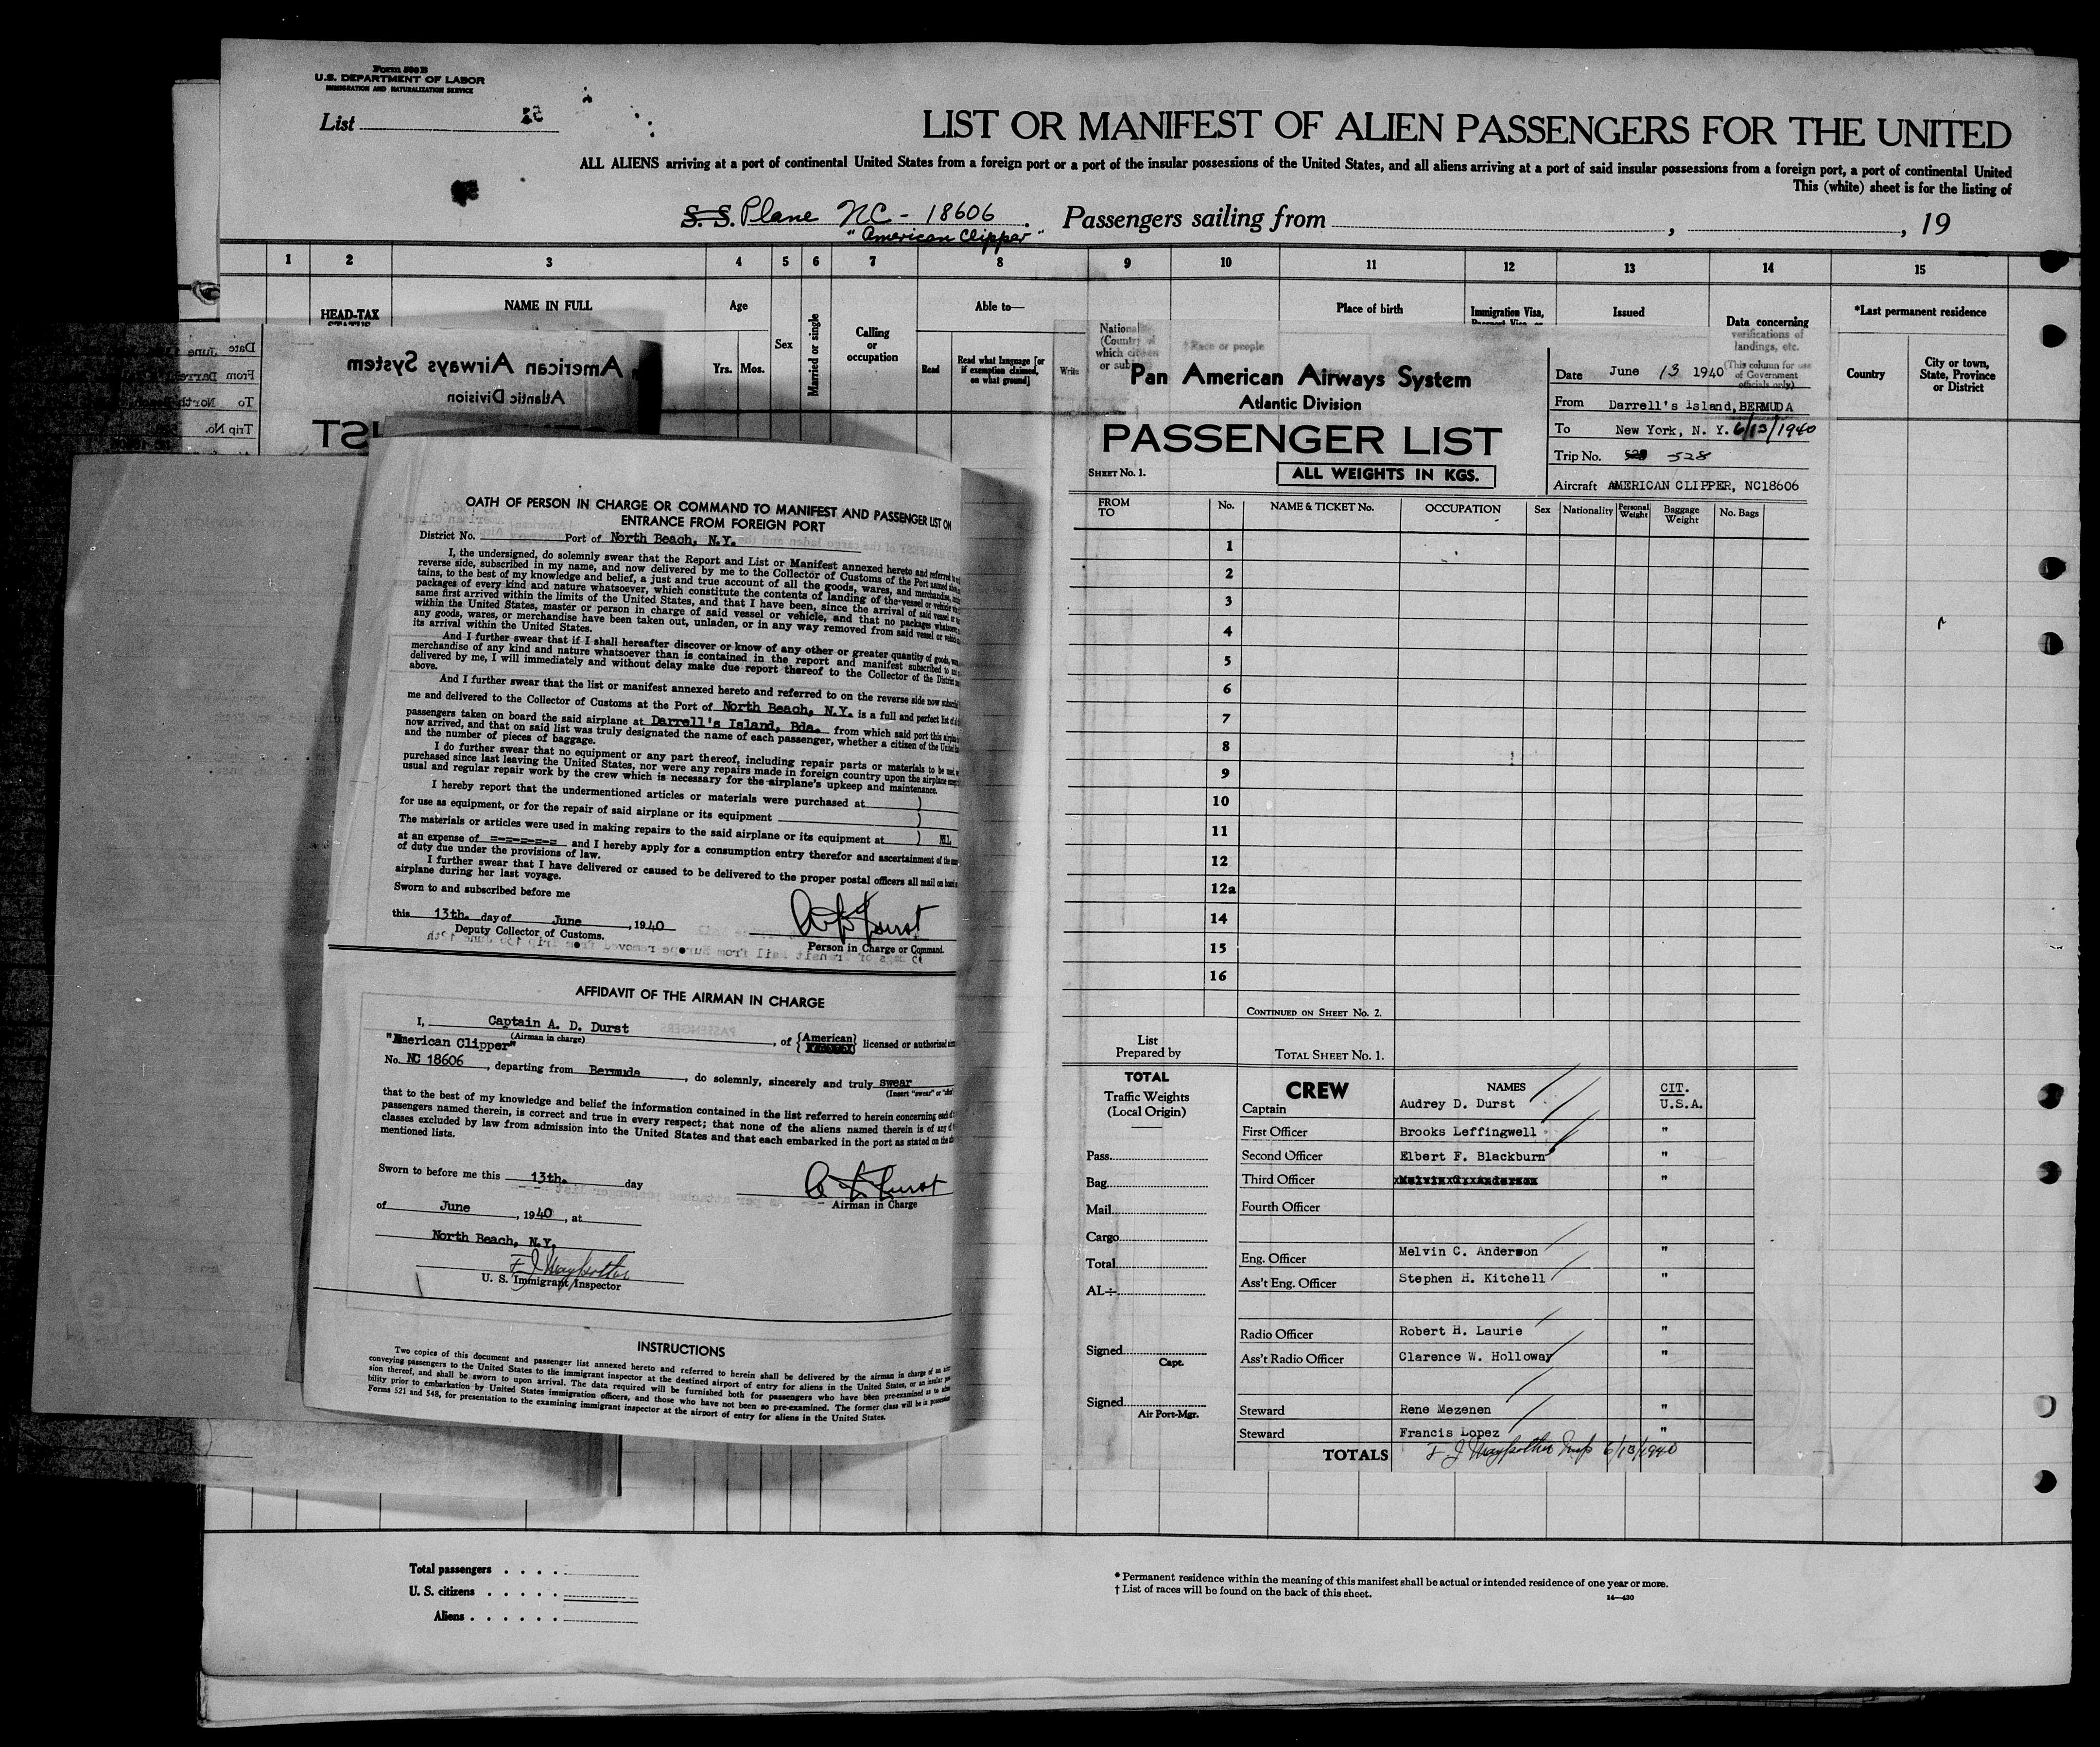 Form 500 B
U.S. DEPARTMENT OF LABOR
IMMIGRATION AND NATURALIZATION SERVICE
List
LIST OR MANIFEST OF ALIEN PASSENGERS FOR THE UNITED
ALL ALIENS arriving at a port of continental United States from a foreign port or a port of the insular possessions of the United States, and all aliens arriving at a port of said insular possessions from a foreign port, a port of continental United
This (white) sheet is for the listing of
S. S. Plane NC - 18606 Passengers sailing from , , 19
"American Clipper"
1 2 3 4 5 6 7 8 9 10 11 12 13 14 15
HEAD-TAX
STATUS
NAME IN FULL
Age
Yrs. Mos.
Sex
Married or single
Calling
or
occupation
Able to—
Read
Read what language [or
if exemption claimed,
on what ground]
Write
† Race or people
Place of birth
Immigration Visa,
Issued
Data concerning
verifications of
landings, etc.
(This column for use
of Government
officials only)
*Last permanent residence
Country
City or town,
State, Province
or District
American Airways System
Atlantic Division
Date
June
From
To
Trip No.
OATH OF PERSON IN CHARGE OR COMMAND TO MANIFEST AND PASSENGER LIST ON
ENTRANCE FROM FOREIGN PORT
District No. Port of North Beach, N.Y.
I, the undersigned, do solemnly swear that the Report and List or Manifest annexed hereto and referred to
reverse side, subscribed in my name, and now delivered by me to the Collector of Customs of the Port named
tains, to the best of my knowledge and belief, a just and true account of all the goods, wares, and merchandise,
packages of every kind and nature whatsoever, which constitute the contents of landing of the vessel or vehicle
same first arrived within the limits of the United States, and that I have been, since the arrival of said vessel or
within the United States, master or person in charge of said vessel or vehicle, and that no packages whatsoever,
any goods, wares, or merchandise have been taken out, unladen, or in any way removed from said vessel or
its arrival within the United States.
And I further swear that if I shall hereafter discover or know of any other or greater quantity of goods,
merchandise of any kind and nature whatsoever than is contained in the report and manifest subscribed to
delivered by me, I will immediately and without delay make due report thereof to the Collector of the District
above.
And I further swear that the list or manifest annexed hereto and referred to on the reverse side now
me and delivered to the Collector of Customs at the Port of North Beach, N.Y. is a full and perfect list of
passengers taken on board the said airplane at Darrell's Island, Bda. from which said port this
now arrived, and that on said list was truly designated the name of each passenger, whether a citizen of the United
and the number of pieces of baggage.
I do further swear that no equipment or any part thereof, including repair parts or materials to be
purchased since last leaving the United States, nor were any repairs made in foreign country upon the airplane
usual and regular repair work by the crew which is necessary for the airplane's upkeep and maintenance.
I hereby report that the undermentioned articles or materials were purchased at )
for use as equipment, or for the repair of said airplane or its equipment )
The materials or articles were used in making repairs to the said airplane or its equipment at ) NIL
at an expense of =-=-=-=-=-= and I hereby apply for a consumption entry therefor and ascertainment of the
of duty due under the provisions of law.
I further swear that I have delivered or caused to be delivered to the proper postal officers all mail on board
airplane during her last voyage.
Sworn to and subscribed before me
this 13th. day of June , 1940
Deputy Collector of Customs.
A D Durst
Person in Charge or Command.
AFFIDAVIT OF THE AIRMAN IN CHARGE
I, Captain A. D. Durst , of {American} licensed or authorised
(Airman in charge)
"American Clipper"
No. NC 18606 , departing from Bermuda , do solemnly, sincerely and truly swear
(Insert "swear" or
that to the best of my knowledge and belief the information contained in the list referred to herein concerning each
passengers named therein, is correct and true in every respect; that none of the aliens named therein is of any
classes excluded by law from admission into the United States and that each embarked in the port as stated on the
mentioned lists.
Sworn to before me this 13th. day
A D Durst
Airman in Charge
of June , 1940 , at
North Beach, N.Y.
U. S. Immigrant Inspector
INSTRUCTIONS
Two copies of this document and passenger list annexed hereto and referred to herein shall be delivered by the airman in charge of an
conveying passengers to the United States to the immigrant inspector at the destined airport of entry for aliens in the United States, or an insular
sion thereof, and shall be sworn to upon arrival. The data required will be furnished both for passengers who have been pre-examined as to
bility prior to embarkation by United States immigration officers, and those who have not been so pre-examined. The former class will be in possession
Forms 521 and 548, for presentation to the examining immigrant inspector at the airport of entry for aliens in the United States.
Pan American Airways System
Atlantic Division
PASSENGER LIST
SHEET No. 1.
ALL WEIGHTS IN KGS.
Date June 13 1940
From Darrell's Island, BERMUDA
To New York, N. Y. 6/13/1940
Trip No. 528
Aircraft AMERICAN CLIPPER, NC18606
FROM
TO
No. NAME & TICKET No. OCCUPATION Sex Nationality Personal Weight Baggage Weight No. Bags
1
2
3
4
5
6
7
8
9
10
11
12
12a
14
15
16
CONTINUED ON SHEET No. 2.
List
Prepared by
TOTAL SHEET No. 1.
TOTAL
Traffic Weights
(Local Origin)
Pass.
Bag.
Mail
Cargo
Total
AL÷
Signed
Capt.
Signed
Air Port-Mgr.
CREW NAMES CIT.
Captain Audrey D. Durst U.S.A.
First Officer Brooks Leffingwell "
Second Officer Elbert F. Blackburn "
Third Officer Melvin C. Anderson "
Fourth Officer
Eng. Officer Melvin C. Anderson "
Ass't Eng. Officer Stephen H. Kitchell "
Radio Officer Robert H. Laurie "
Ass't Radio Officer Clarence W. Holloway "
Steward Rene Mezenen "
Steward Francis Lopez "
TOTALS
6/13/1940
Total passengers . . . .
U. S. citizens . . . . .
Aliens . . . . . .
* Permanent residence within the meaning of this manifest shall be actual or intended residence of one year or more.
† List of races will be found on the back of this sheet.
14—430